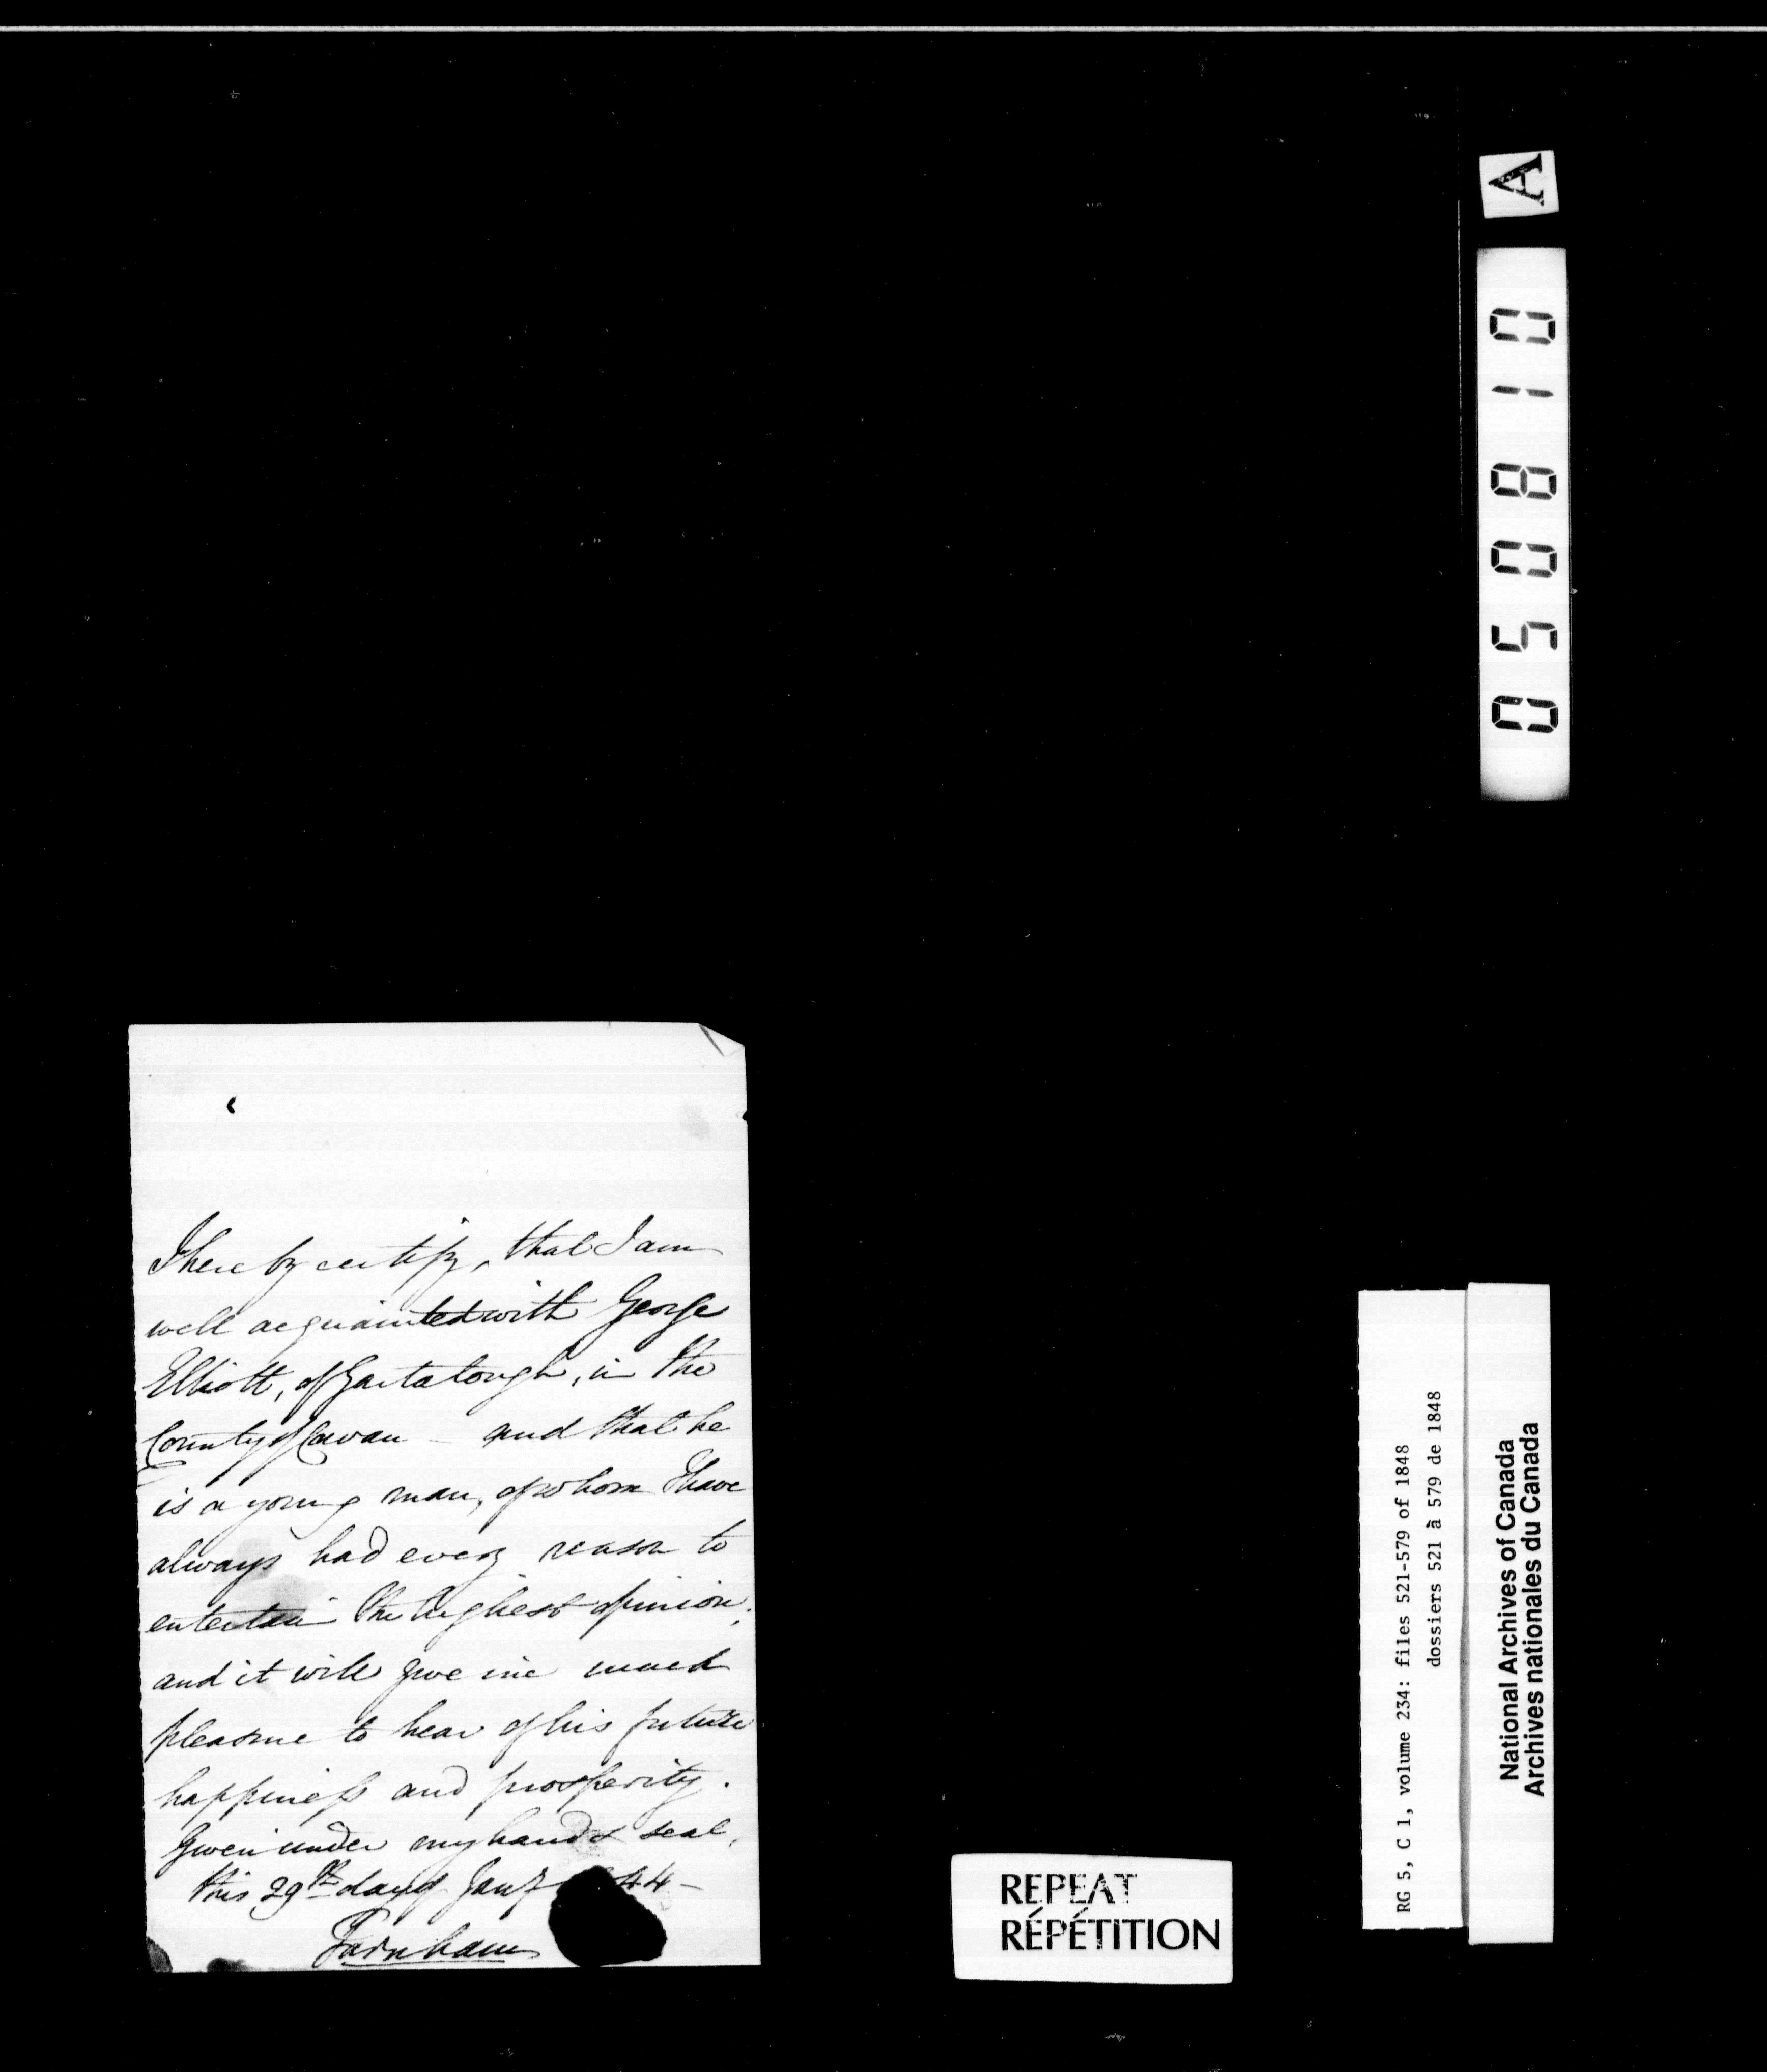 I hereby certify, that I am
well acquainted with George
Elliott, of Gartalough, in the
County of Cavan – and that he
is a young man, of whom I have
always had every reason to
entertain the highest opinion;
and it will give me much
pleasure to hear of his future
happiness and prosperity.
Given under my hand & seal,
this 29th day of Jany 44 –
Farnham
A
050810
RG 5, C 1, volume 234: files 521-579 of 1848
dossiers 521 à 579 de 1848
National Archives of Canada
Archives nationales du Canada
REPEAT
RÉPÉTITION